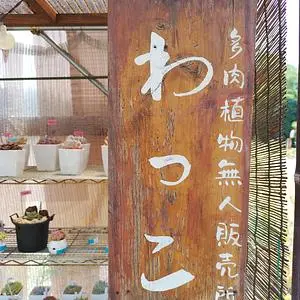 多肉植物無人販売所
わっこ